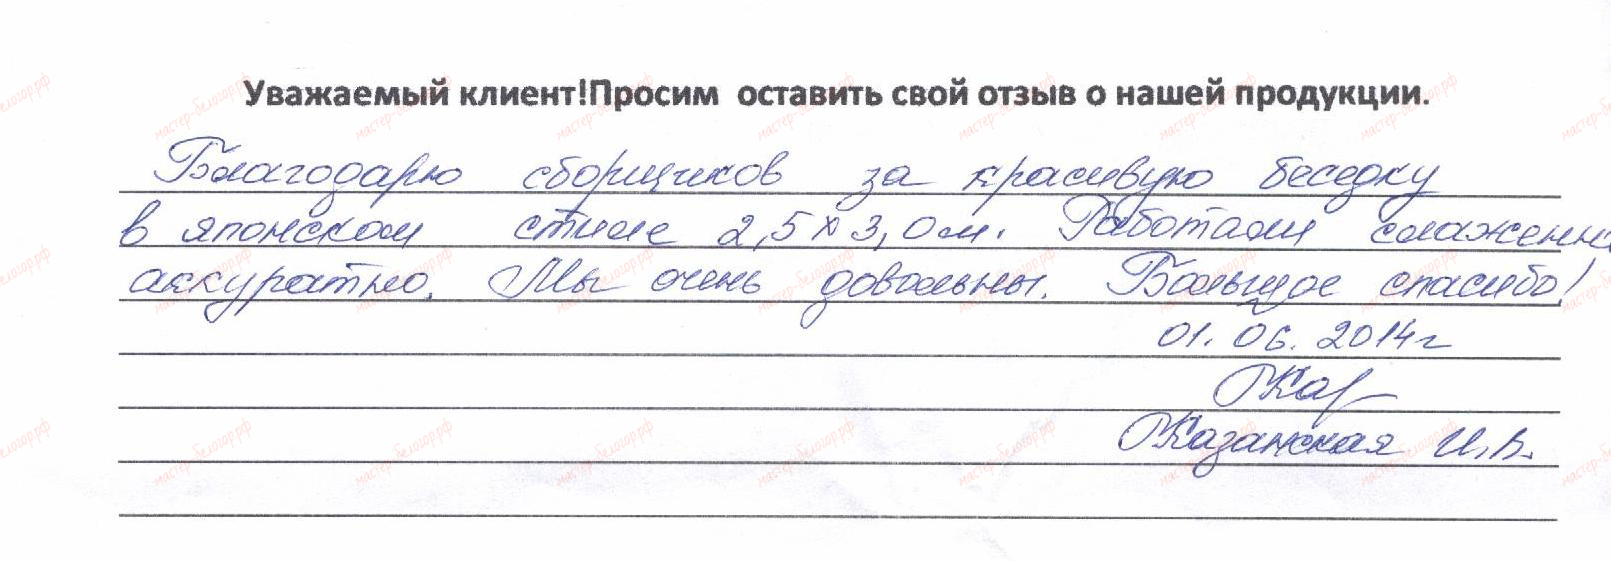 Уважаемый клиент!Просим оставить свой отзыв о нашей продукции.
Благодарю сборщиков за красивую беседку
в японском стиле 2,5х3,0м. Работали слаженно
аккуратно. Мы очень довольны. Большое спасибо!
01.06.2014г
Каз
Казанская И.В.
мастер-белогор.рф